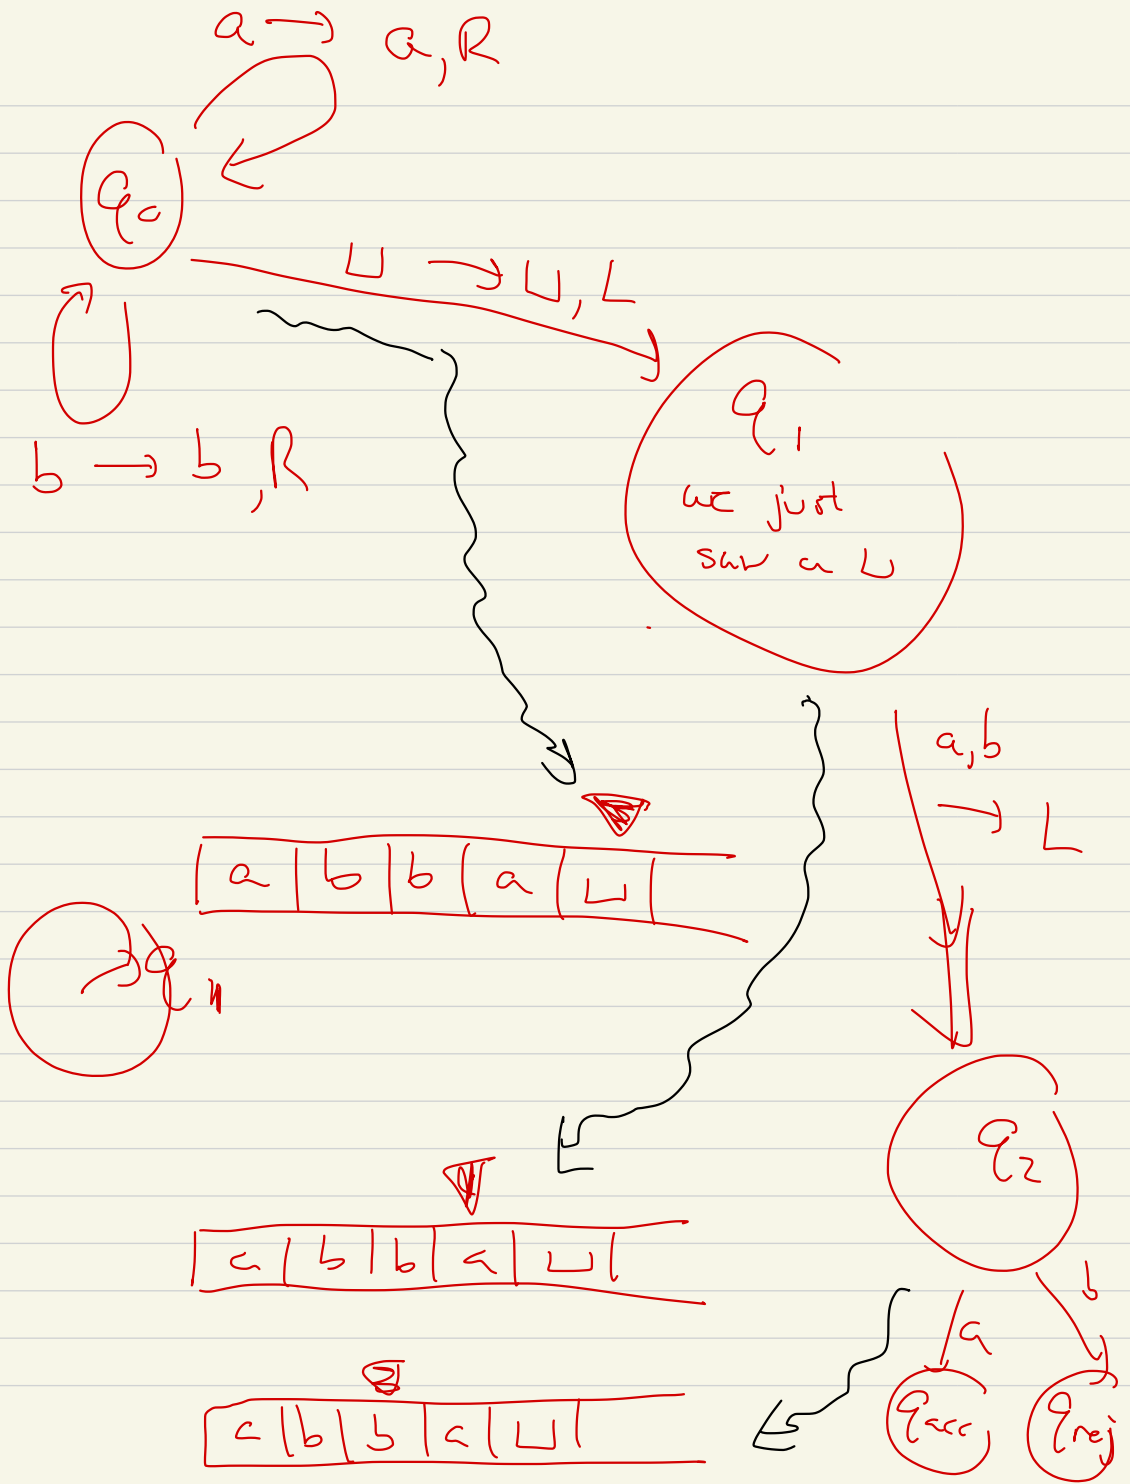 a → a, R
q₀
⊔ → ⊔, L
b → b, R
q₁
we just
saw a ⊔
a, b
→ L
a b b a ⊔
q₁
q₂
a b b a ⊔
b
a
a b b a ⊔
qacc qrej